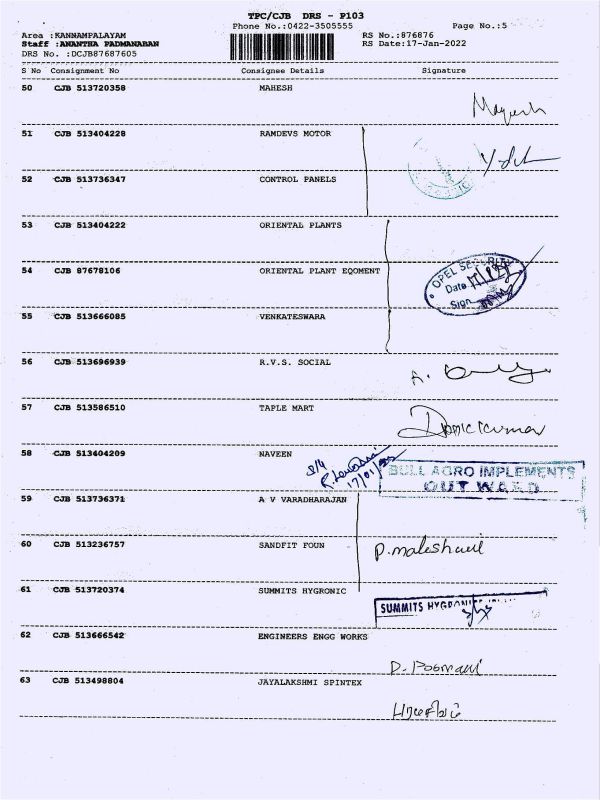 TPC/CJB DRS - P103
Phone No.:0422-3505555
Page No.:5
Area :KANNAMPALAYAM
RS No.:876876
Staff :ANANTHA PADMANABAN
RS Date:17-Jan-2022
DRS No. :DCJB87687605
S No Consignment No Consignee Details Signature
50 CJB 513720358 MAHESH
51 CJB 513404228 RAMDEVS MOTOR
52 CJB 513736347 CONTROL PANELS
53 CJB 513404222 ORIENTAL PLANTS
54 CJB 87678106 ORIENTAL PLANT EQOMENT
OPEL SECURITY
Date
Sign
55 CJB 513666085 VENKATESWARA
56 CJB 513696939 R.V.S. SOCIAL
57 CJB 513586510 TAPLE MART
58 CJB 513404209 NAVEEN
17/01/22
BULL AGRO IMPLEMENTS
OUT WARD
59 CJB 513736371 A V VARADHARAJAN
60 CJB 513236757 SANDFIT FOUN
61 CJB 513720374 SUMMITS HYGRONIC
SUMMITS HYGRONIC
62 CJB 513666542 ENGINEERS ENGG WORKS
63 CJB 513498804 JAYALAKSHMI SPINTEX